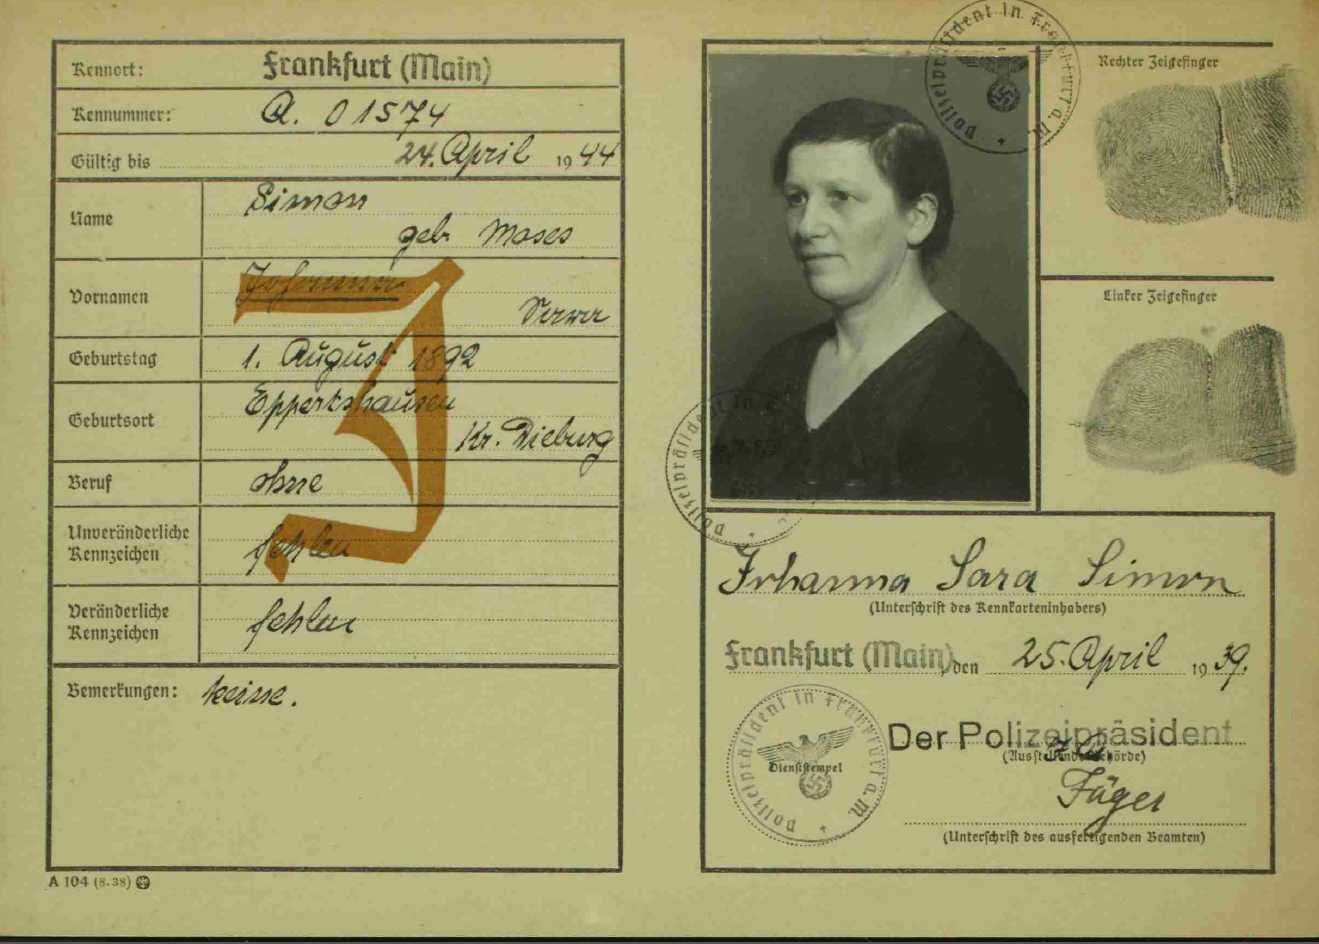 Kennort: Frankfurt (Main)
Kennummer: A. 01574
Gültig bis 24. April 1944
Name Simon
geb. Moses
Vornamen Johanna
Sara
Geburtstag 1. August 1892
Geburtsort Eppertshausen
Kr. Dieburg
Beruf ohne
Unveränderliche Kennzeichen fehlen
Veränderliche Kennzeichen fehlen
Bemerkungen: keine.
J
A 104 (8.38)
Polizeipräsident in Frankfurt a. M.
Rechter Zeigefinger
Linker Zeigefinger
Polizeipräsident in
Johanna Sara Simon
(Unterschrift des Kennkarteninhabers)
Frankfurt (Main), den 25. April 1939.
Der Polizeipräsident
(Ausstellende Behörde)
Polizeipräsident in Frankfurt a. M.
Dienststempel
Füger
(Unterschrift des ausfertigenden Beamten)